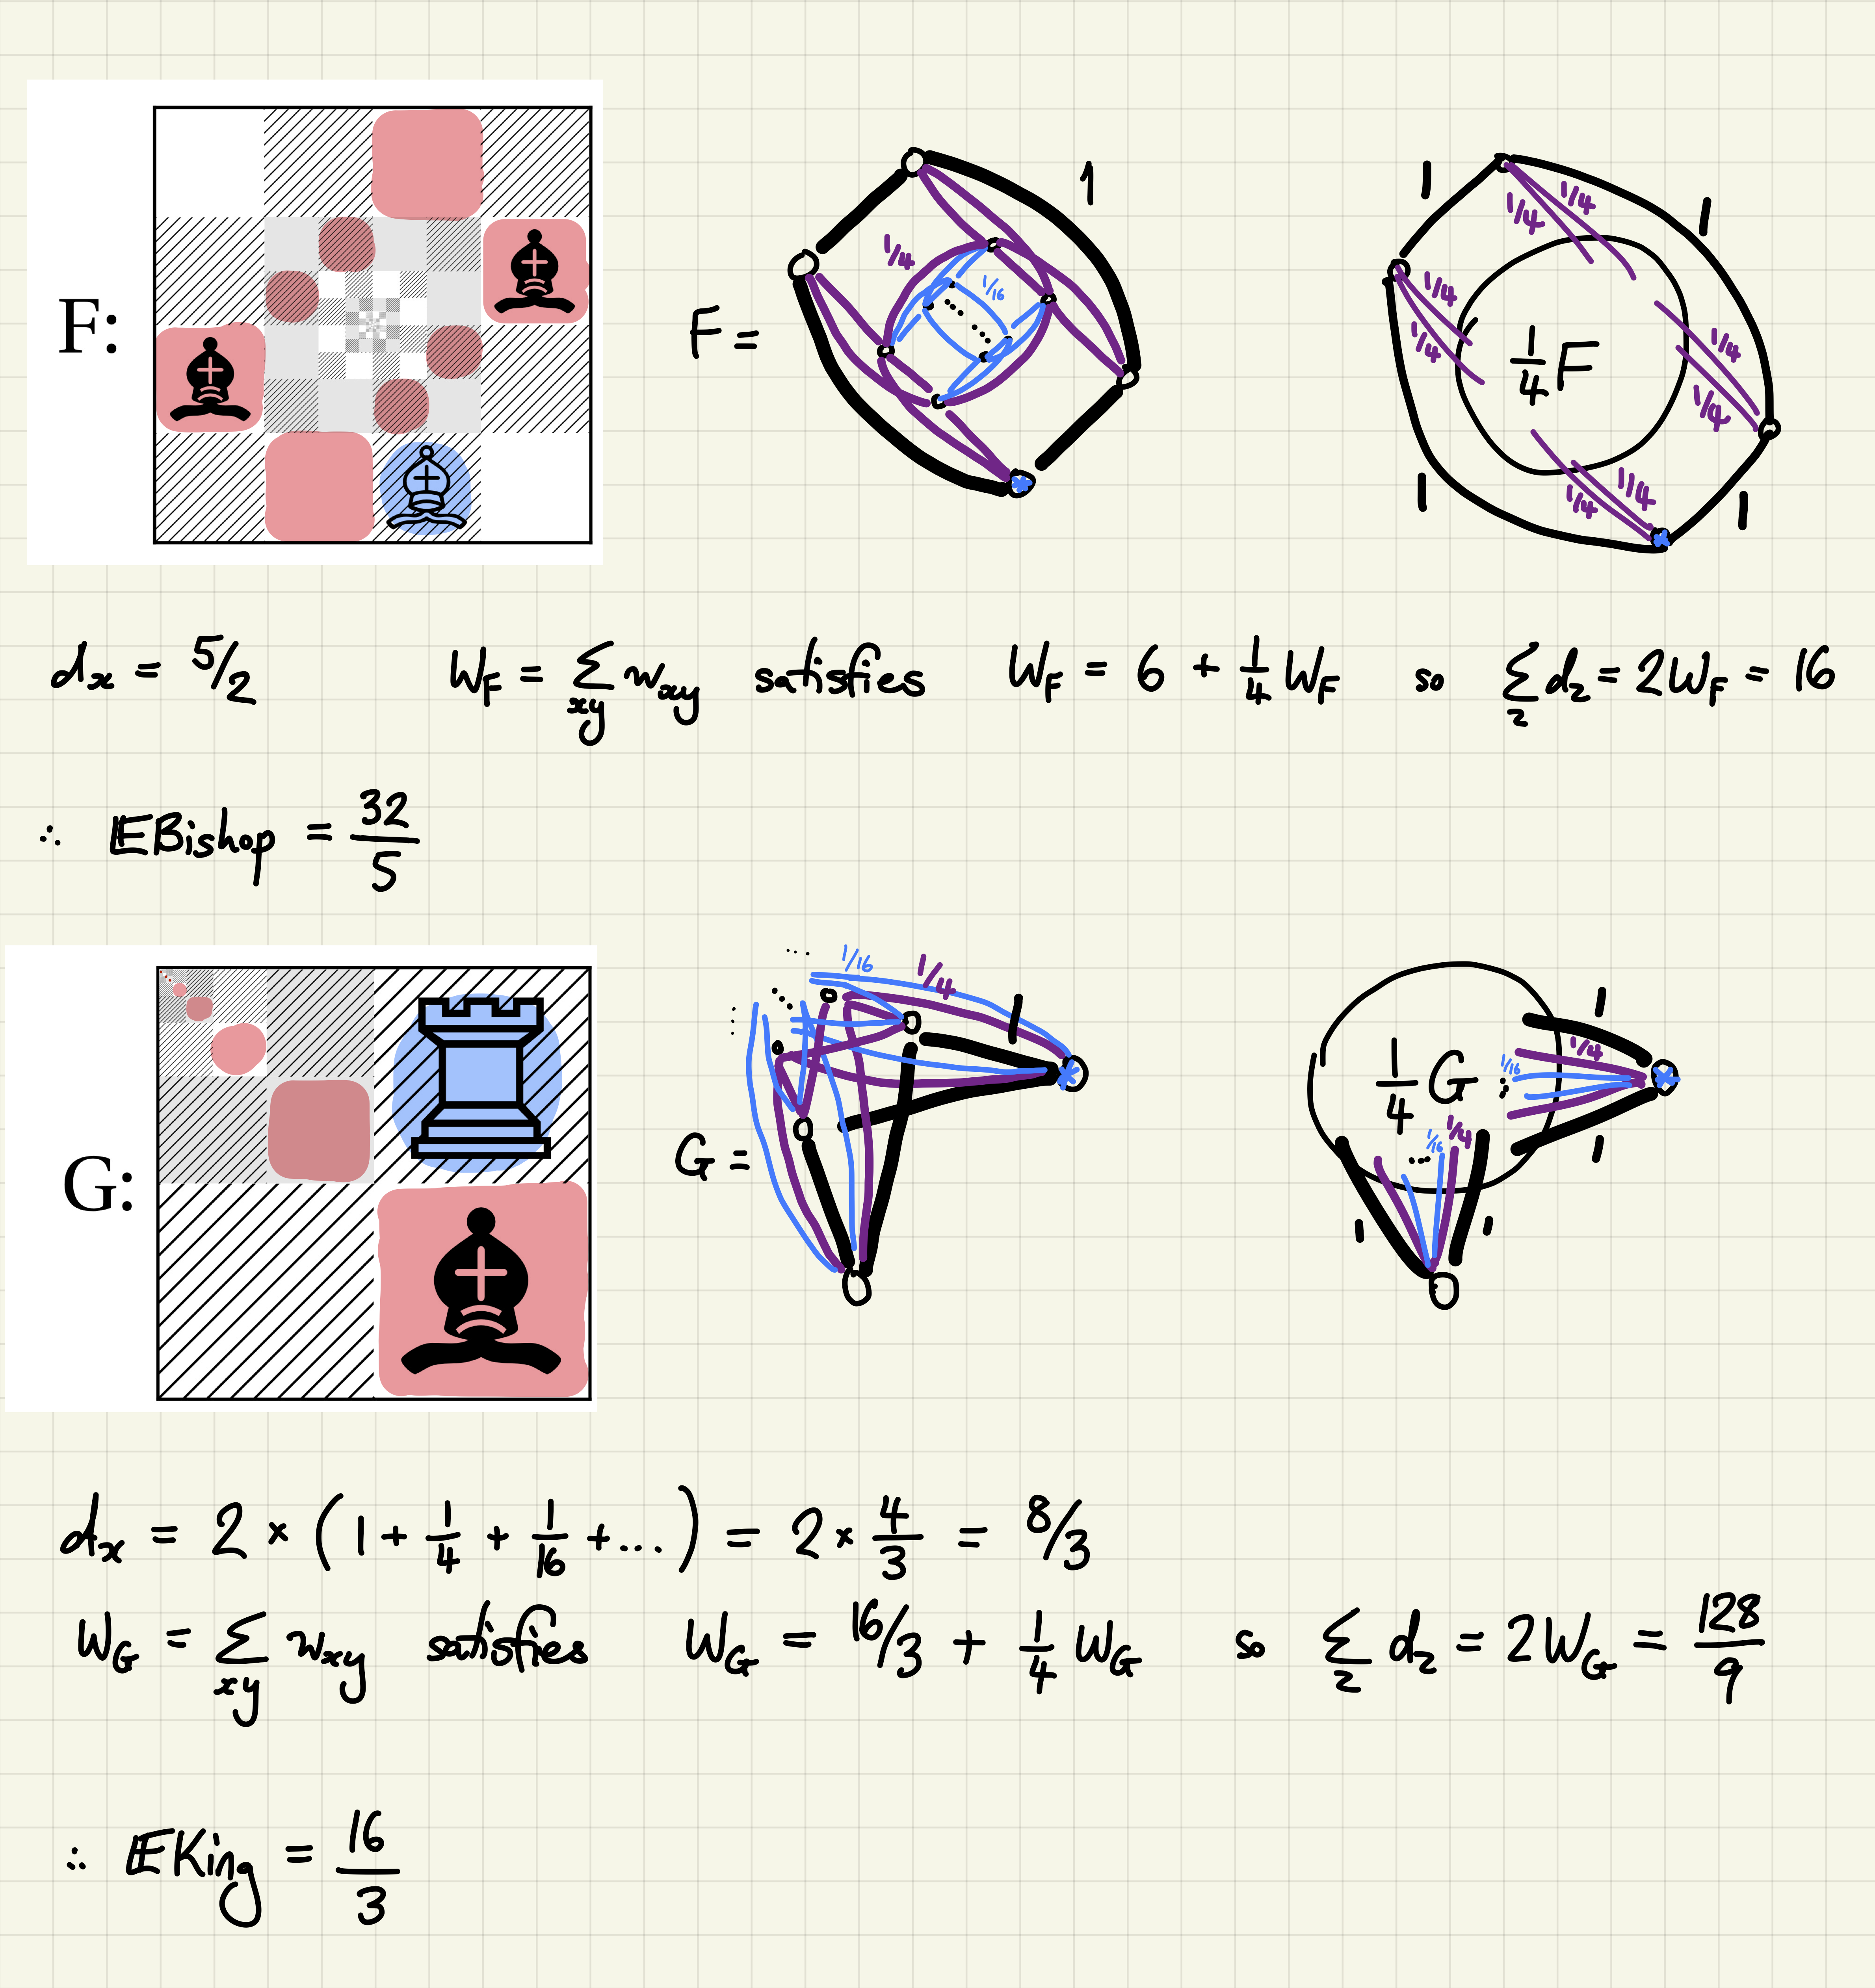 F:
F =
1
1/4
1/16
1
1
1/4
1/4
1/4
1/4
1/4 F
1/4
1/4
1/4
1/4
1
1
dx = 5/2 W_F = Σ_xy w_xy satisfies W_F = 6 + 1/4 W_F so Σ_z d_z = 2W_F = 16
∴ EBishop = 32/5
G:
G =
...
1/16
1/4
1
1/4 G
1
1/4
1/16
1
1/16
1/4
...
1
1
dx = 2 × (1 + 1/4 + 1/16 + ...) = 2 × 4/3 = 8/3
W_G = Σ_xy w_xy satisfies W_G = 16/3 + 1/4 W_G so Σ_z d_z = 2W_G = 128/9
∴ EKing = 16/3